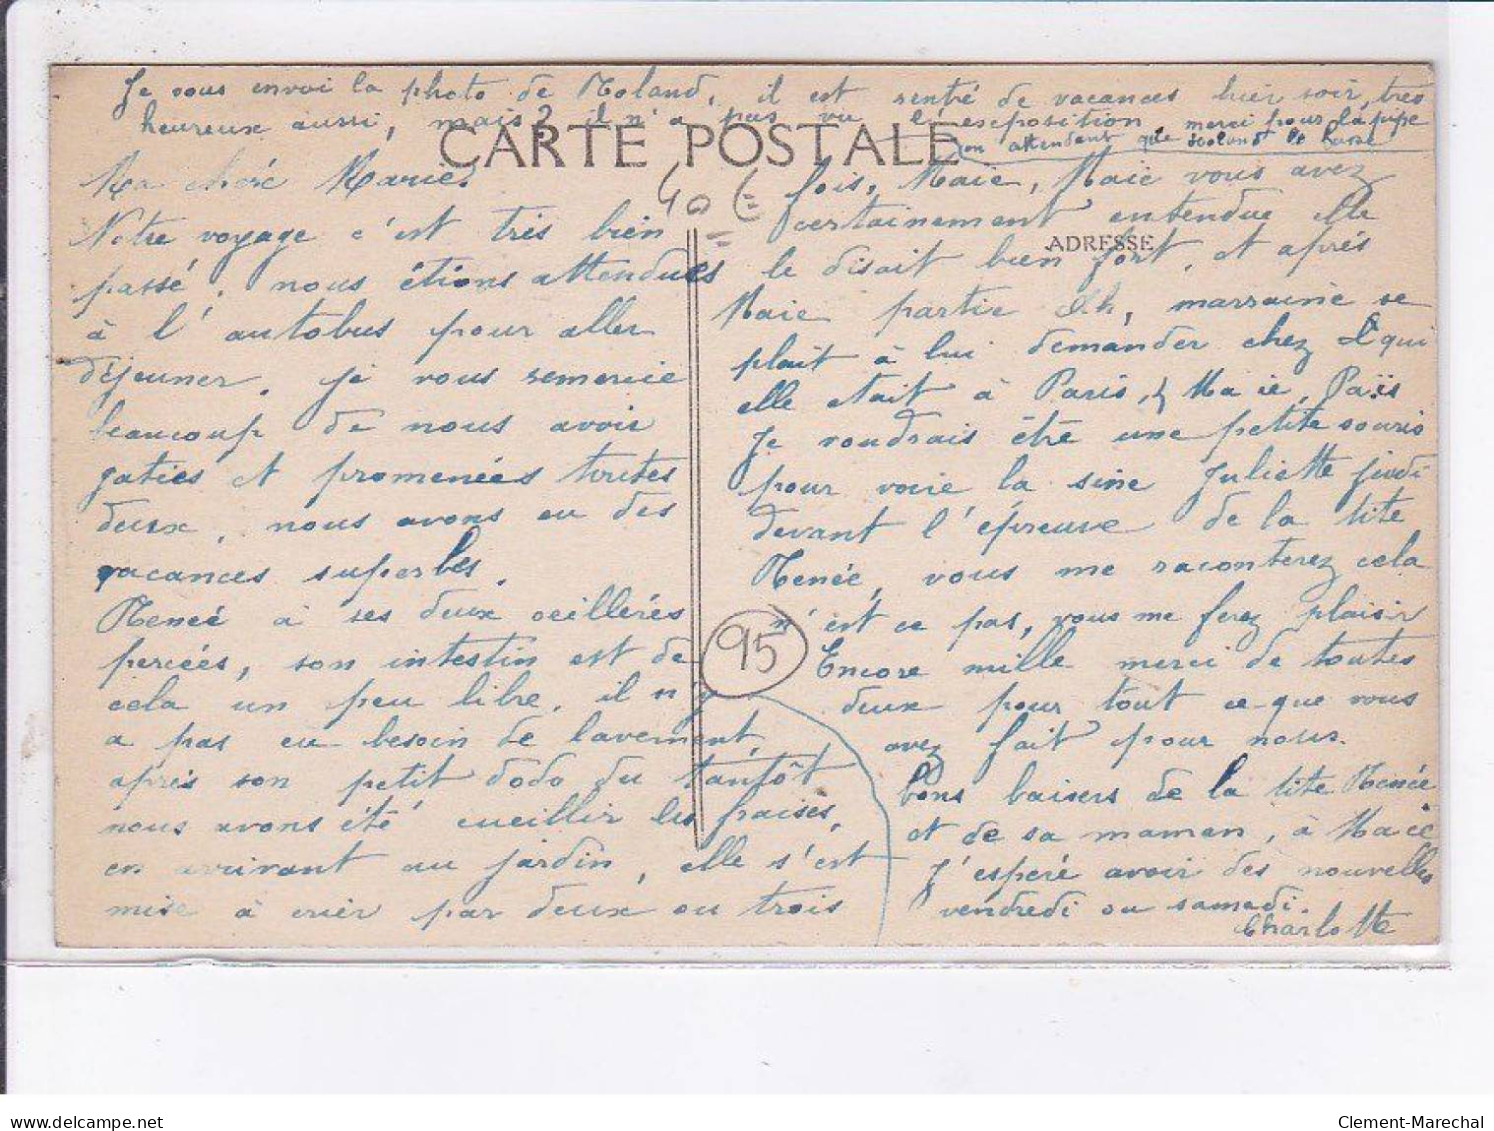 Je vous envoi la photo de Roland, il est rentré de vacances hier soir, très
heureux aussi, mais? il n'a pas vu l'exposition merci pour la pipe
en attendant que Roland la
CARTE POSTALE
ADRESSE
Ma chère Marie.
Notre voyage c'est très bien
passé, nous étions attendues
à l'autobus pour aller
déjeuner. Je vous remercie
beaucoup de nous avoir
gatiés et promenées toutes
deux, nous avons eu des
vacances superbes.
Renée à ses deux oeillères
percées, son intestin est de
cela un peu libre, il n'y
a pas eu besoin de lavement,
après son petit dodo du tantôt
nous avons été cueillir les fraises,
en arrivant au jardin, elle s'est
mise à crier par deux ou trois
40 =
95
fois, Maie, Maie vous avez
certainement entendue elle
le disait bien fort, et après
Maie partie Eh, marraine se
plait à lui demander chez qui
elle était à Paris, Maie, Païs
Je voudrais être une petite souris
pour voire la sine Juliette jeudi
devant l'épreuve de la tite
Renée, vous me raconterez cela
n'est ce pas, vous me ferez plaisir
Encore mille merci de toutes
deux pour tout ce que vous
avez fait pour nous.
bons baisers de la tite Renée
et de sa maman, à Maie
J'espère avoir des nouvelles
vendredi ou samedi.
Charlotte
www.delcampe.net
Clement-Marechal